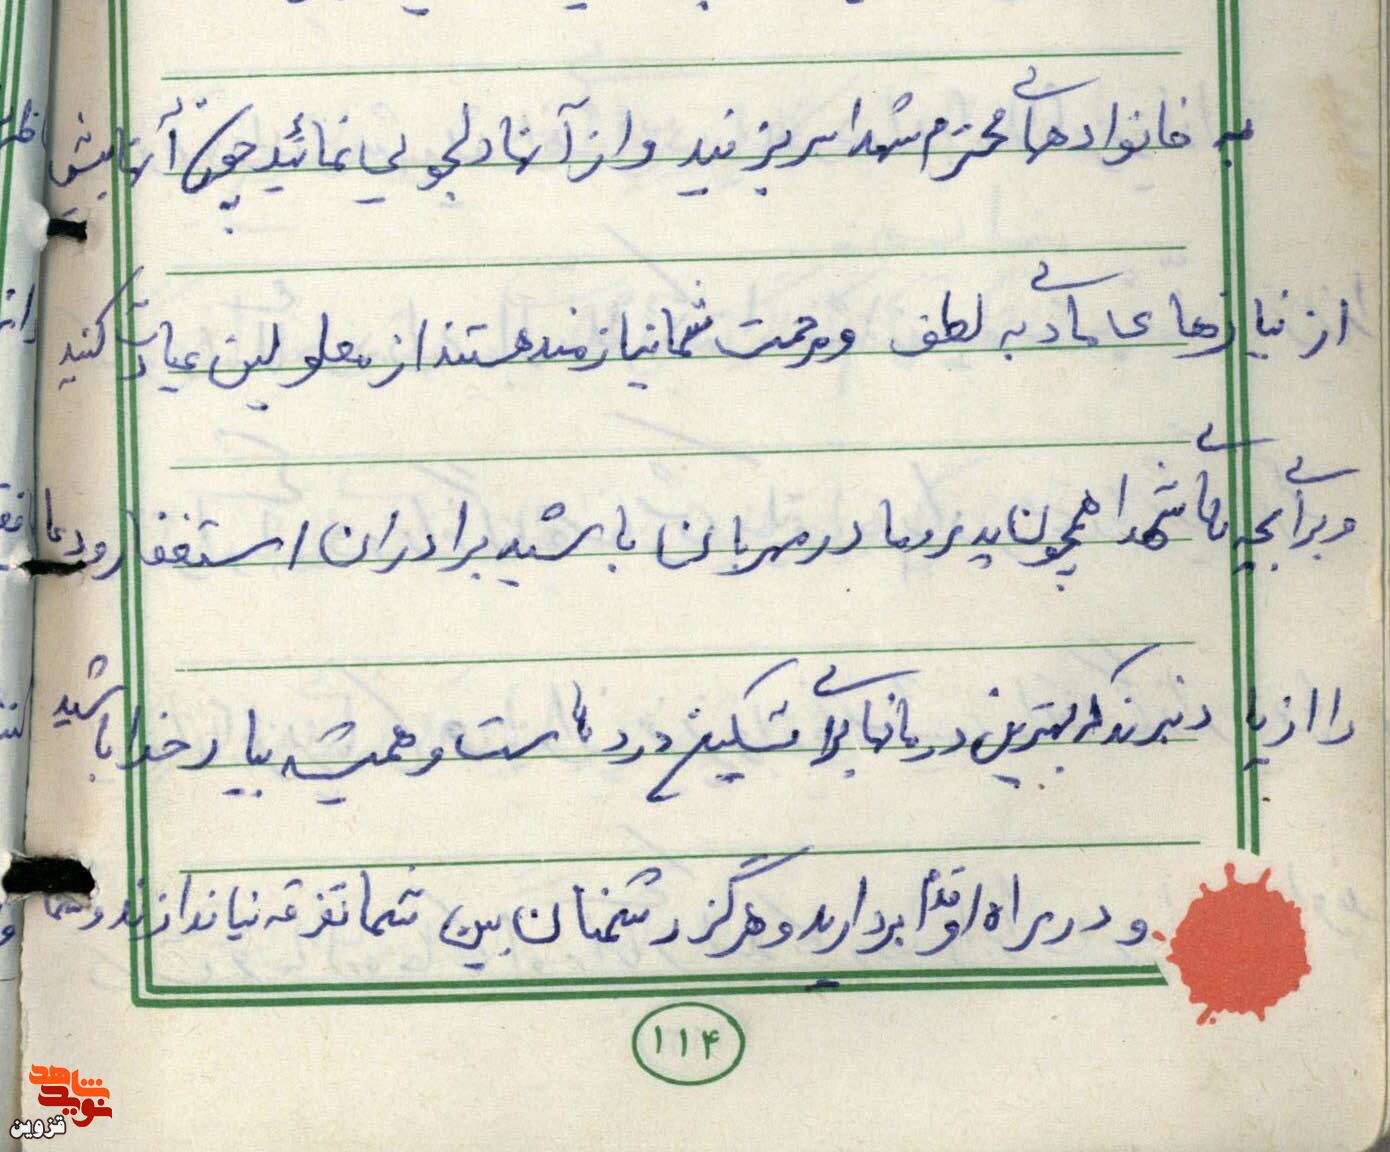 به خانوادهای محترم شهدا سر بزنید و از آنها دلجویی نمائید چون آنها بیش
از نیازهای مادی به لطف و مرحمت شما نیازمند هستند از معلولین عیادت کنید
و برای بچه های شهدا همچون پدر و مادر مهربان باشید برادران استغفار و دعا
را از یاد نبرند که بهترین درمانها برای تسکین درد هاست و همیشه بیاد خدا باشید
و در راه او قدم بردارید و هرگز دشمنان بین شما تفرقه نیاندازند و شما
۱۱۴
نوید شاهد
قزوین